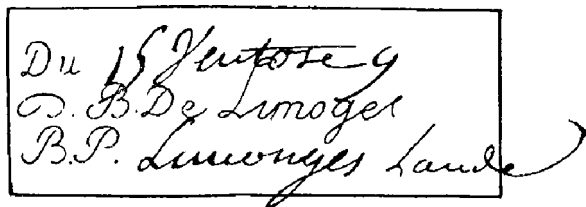 Du 15 Ventose 9
D. B. De Limoges
B. P. Limonges Laude